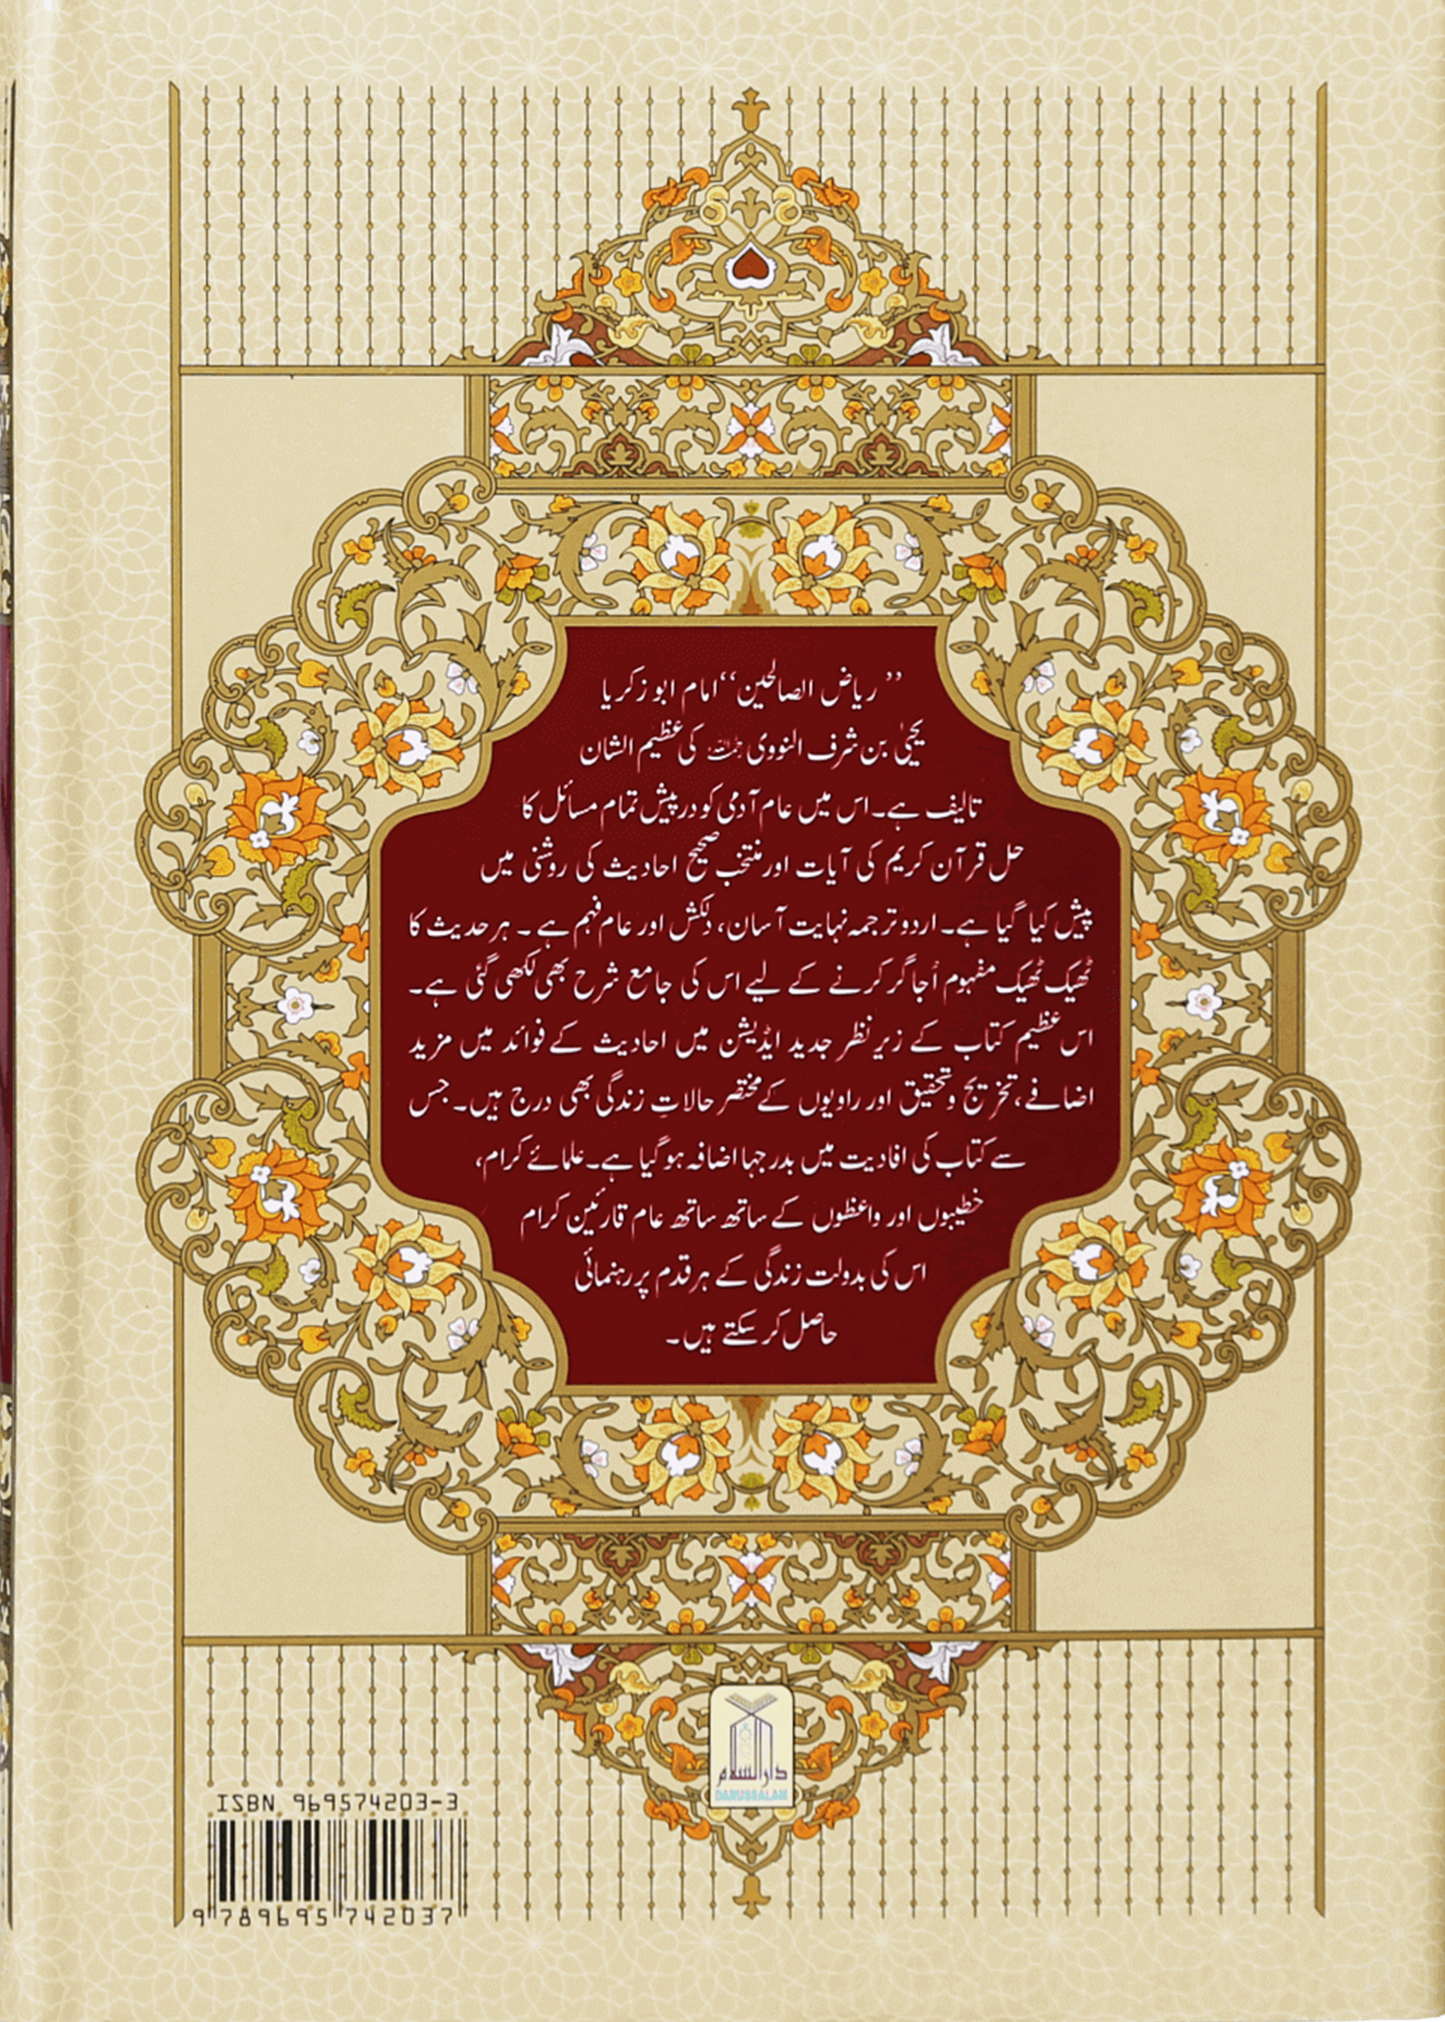 ”ریاض الصالحین“ امام ابو زکریا
یحییٰ بن شرف النووی رحمہ اللہ کی عظیم الشان
تالیف ہے۔ اس میں عام آدمی کو درپیش تمام مسائل کا
حل قرآن کریم کی آیات اور منتخب صحیح احادیث کی روشنی میں
پیش کیا گیا ہے۔ اردو ترجمہ نہایت آسان، دلکش اور عام فہم ہے ۔ ہر حدیث کا
ٹھیک ٹھیک مفہوم اُجاگر کرنے کے لیے اس کی جامع شرح بھی لکھی گئی ہے۔
اس عظیم کتاب کے زیر نظر جدید ایڈیشن میں احادیث کے فوائد میں مزید
اضافے، تخریج و تحقیق اور راویوں کے مختصر حالاتِ زندگی بھی درج ہیں۔ جس
سے کتاب کی افادیت میں بدرجہا اضافہ ہو گیا ہے۔ علمائے کرام،
خطیبوں اور واعظوں کے ساتھ ساتھ عام قارئین کرام
اس کی بدولت زندگی کے ہر قدم پر رہنمائی
حاصل کر سکتے ہیں۔
دارالسلام
DARUSSALAM
ISBN 969574203-3
9 789695 742037